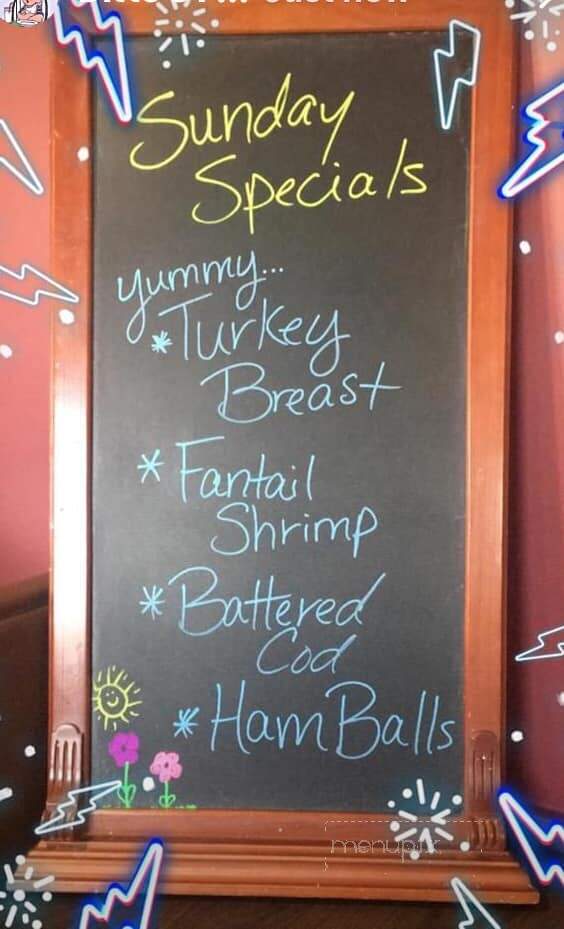 Just now
Sunday
Specials
yummy...
*Turkey
Breast
* Fantail
Shrimp
* Battered
Cod
* Ham Balls
menupix